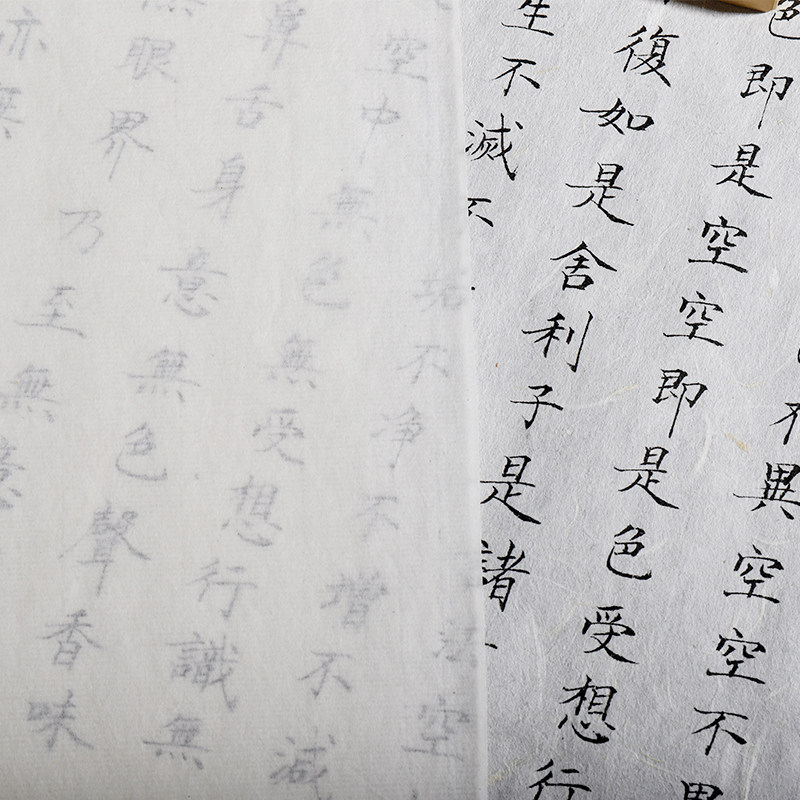 不異空空不異
色即是空空即是色受想行
復如是舍利子是諸法空
生不滅不垢不净不增不減
空中無色無受想行識無
鼻舌身意無色聲香味
無眼界乃至無意
亦無